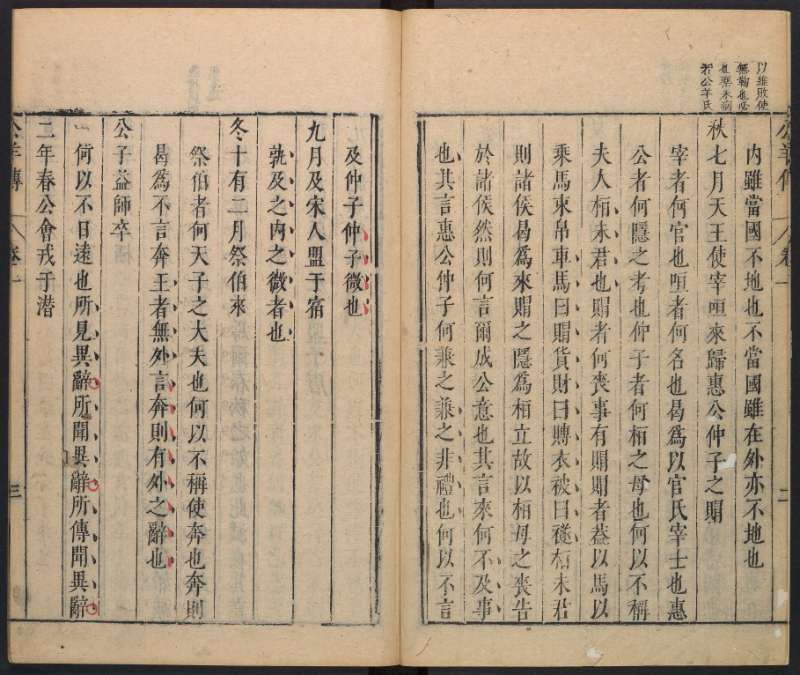 以雖敗使
無鞠也必
若公羊氏
內雖當國不地也不當國雖在外亦不地也
秋七月天王使宰咺來歸惠公仲子之賵
宰者何官也咺者何名也曷爲以官氏宰士也惠
公者何隱之考也仲子者何桓之母也何以不稱
夫人桓未君也賵者何喪事有賵賵者蓋以馬以
乘馬束帛車馬曰賵貨財曰賻衣被曰襚桓未君
則諸侯曷爲來賵之隱爲桓立故以桓母之喪告
於諸侯然則何言爾成公意也其言來何不及事
也其言惠公仲子何兼之兼之非禮也何以不言
公羊傳
卷一
二
及仲子仲子微也
九月及宋人盟于宿
孰及之內之微者也
冬十有二月祭伯來
祭伯者何天子之大夫也何以不稱使奔也奔則
曷爲不言奔王者無外言奔則有外之辭也
公子益師卒
何以不日遠也所見異辭所聞異辭所傳聞異辭
二年春公會戎于潛
公羊傳
卷一
三